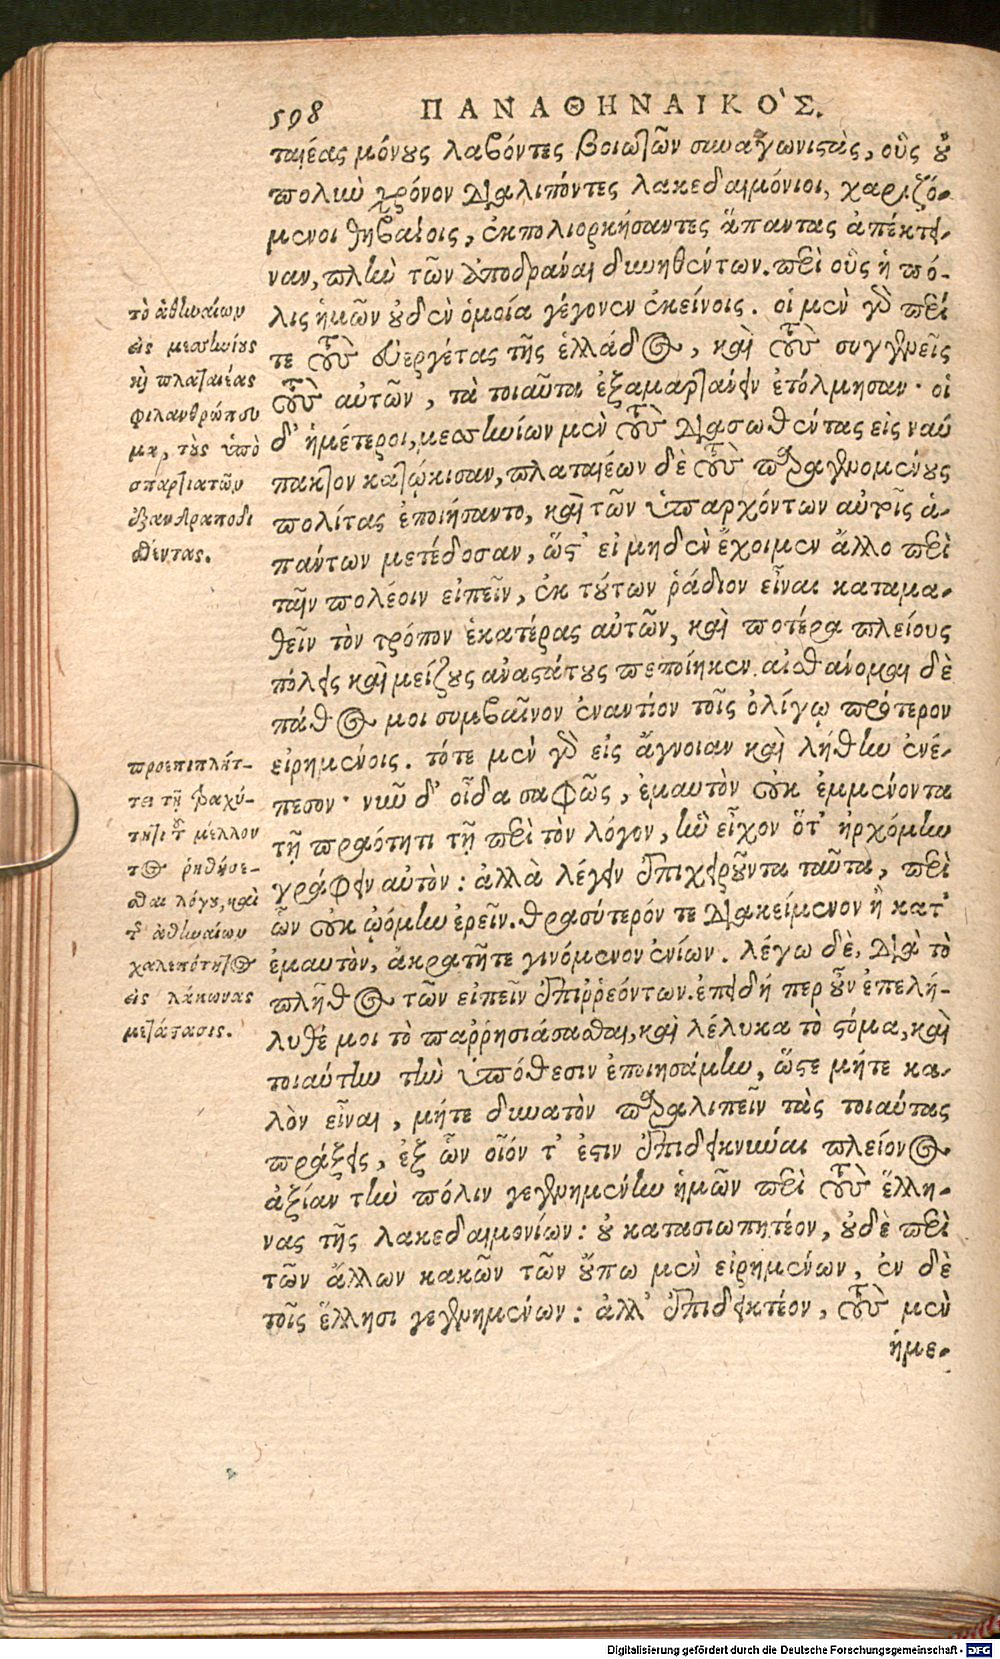 598 ΠΑΝΑΘΗΝΑΙΚΟ'Σ.
ταιέας μόνους λαβόντες βοιωτῶν συναγωνιστὰς, οὓς οὐ
πολὺν χρόνον διαλιπόντες λακεδαιμόνιοι, χαριζό-
μενοι θηβαίοις, ἐκπολιορκήσαντες ἅπαντας ἀπέκτει-
ναν, πλὴν τῶν ἀποδρᾶναι δυνηθέντων. περὶ οὓς ἡ πό-
λις ἡμῶν οὐδὲν ὁμοία γέγονεν ἐκείνοις. οἱ μὲν γὰρ περί
τε τοὺς εὐεργέτας τῆς ἑλλάδος, καὶ τοὺς συγγενεῖς
τοὺς αὑτῶν, τὰ τοιαῦτα ἐξαμαρτάνειν ἐτόλμησαν· οἱ
δ' ἡμέτεροι, μεσσηνίων μὲν τοὺς διασωθέντας εἰς ναύ
πακτον κατῴκισαν, πλαταιέων δὲ τοὺς παραγενομένους
πολίτας ἐποιήσαντο, καὶ τῶν ὑπαρχόντων αὐτοῖς ἁ-
πάντων μετέδοσαν, ὥστ' εἰ μηδὲν ἔχοιμεν ἄλλο περὶ
ταῖν πολέοιν εἰπεῖν, ἐκ τούτων ῥᾴδιον εἶναι καταμα-
θεῖν τὸν τρόπον ἑκατέρας αὐτῶν, καὶ ποτέρα πλείους
πόλεις καὶ μείζους ἀναστάτους πεποίηκεν. αἰσθάνομαι δὲ
πάθος μοι συμβαῖνον ἐναντίον τοῖς ὀλίγῳ πρότερον
εἰρημένοις. τότε μὲν γὰρ εἰς ἄγνοιαν καὶ λήθην ἐνέ-
πεσον· νῦν δ' οἶδα σαφῶς, ἐμαυτὸν οὐκ ἐμμένοντα
τῇ πραότητι τῇ περὶ τὸν λόγον, ἣν εἶχον ὅτ' ἠρχόμην
γράφειν αὐτὸν: ἀλλὰ λέγειν ἐπιχειροῦντα ταῦτα, περὶ
ὧν οὐκ ᾠόμην ἐρεῖν. θρασύτερόν τε διακείμενον ἢ κατ'
ἐμαυτὸν, ἀκρατῆτε γινόμενον ἐνίων. λέγω δὲ, διὰ τὸ
πλῆθος τῶν εἰπεῖν ἐπιῤῥεόντων. ἐπειδή περ οὖν ἐπελή-
λυθέ μοι τὸ παῤῥησιάσασθαι, καὶ λέλυκα τὸ στόμα, καὶ
τοιαύτην τὴν ὑπόθεσιν ἐποιησάμην, ὥστε μήτε κα-
λὸν εἶναι, μήτε δυνατὸν παραλιπεῖν τὰς τοιαύτας
πράξεις, ἐξ ὧν οἷόν τ' ἐστιν ἐπιδεικνύναι πλείονος
ἀξίαν τὴν πόλιν γεγενημένην ἡμῶν περὶ τοὺς ἕλλη-
νας τῆς λακεδαιμονίων: οὐ κατασιωπητέον, οὐδὲ περὶ
τῶν ἄλλων κακῶν τῶν οὔπω μὲν εἰρημένων, ἐν δὲ
τοῖς ἕλλησι γεγενημένων: ἀλλ' ἐπιδεικτέον, τοὺς μὲν
ἡμε-
τὸ ἀθηναίων
εἰς μεσσηνίους
κỳ πλαταιέας
φιλανθρώπευ
μα, τοὺς ὑπὸ
σπαρτιατῶν
ἐξανδραποδι
σθέντας.
προεπιπλήτ-
τει τῇ βραχύ-
τητι τοῦ μέλλον
τος ῥηθήσε-
σθαι λόγου, καὶ
τῆς ἀθηναίων
χαλεπότητος
εἰς λάκωνας
μετάστασις.
Digitalisierung gefördert durch die Deutsche Forschungsgemeinschaft - DFG